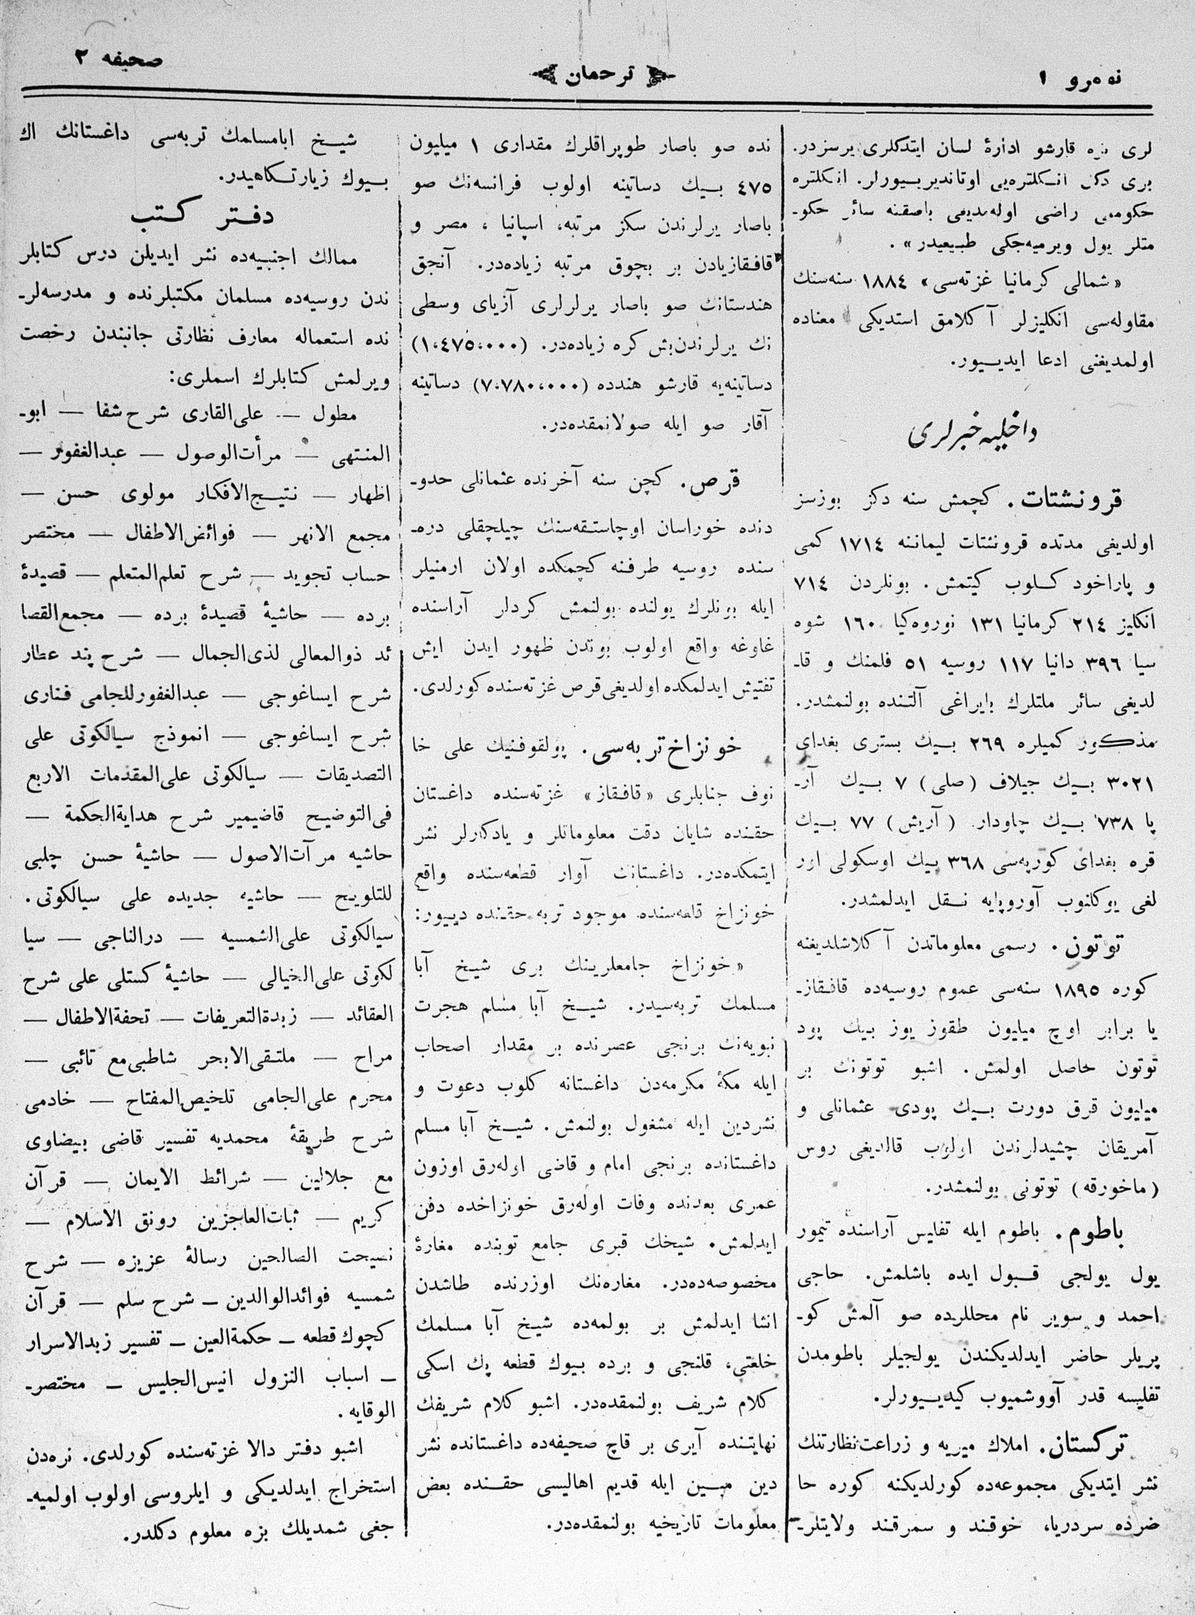 نومرو ١
ترجمان
صحیفه ٣
لری بزه قارشو ادارهٔ لسان ایتدکلری یرسزدر.
بری دکل انکلتره‌یی اوتاندیریورلر. انکلتره
حکومتی راضی اولمدیغی باصقنه سائر حکو-
متلر یول ویرمیه‌جکی طبیعیدر» .
«شمالی کرمانیا غزته‌سی» ١٨٨٤ سنه‌سنك
مقاوله‌سی انکلیزلر آکلامق استدیکی معناده
اولمدیغنی ادعا ایدییور.
داخلیه خبرلری
قرونشتات. کچمش سنه دکز بوزسز
اولدیغی مدتده قرونشتات لیماننه ١٧١٤ کمی
و پاراخود کلوب کیتمش. بونلردن ٧١٤
انکلیز ٢١٤ کرمانیا ١٣١ نوروه‌کیا ١٦٠ شوه
سیا ٣٩٦ دانیا ١١٧ روسیه ٥١ فلمنك و قا-
لدیغی سائر ملتلرك بایراغی آلتنده بولنمشدر.
مذکور کمیلره ٢٦٩ بیك بستری بغدای
٣٠٢١ بیك جیلاف (صلی) ٧ بیك آر-
پا ٧٣٨ بیك چاودار (آریش) ٧٧ بیك
قره بغدای کورپه‌سی ٣٦٨ بیك اوسکولی اور
لغی یوکلنوب آوروپایه نقل ایدلمشدر.
توتون. رسمی معلوماتدن آکلاشلدیغنه
کوره ١٨٩٥ سنه‌سی عموم روسیه‌ده قافقاز-
یا برابر اوچ میلیون طقوز یوز بیك پود
توتون حاصل اولمش. اشبو توتونك بر
میلیون قرق دورت بیك پودی عثمانلی و
آمریقان چشیدلرندن اولوب قالدیغی روس
(ماخورقه) توتونی بولنمشدر.
باطوم. باطوم ایله تفلیس آراسنده تیمور
یول یولجی قبول ایده باشلمش. حاجی
احمد و سویر نام محللرده صو آلمش کو-
پریلر حاضر ایدلدیکندن یولجیلر باطومدن
تفلیسه قدر آووشمیوب کیدییورلر.
ترکستان. املاك میریه و زراعت نظارتنك
نشر ایتدیکی مجموعه‌ده کورلدیکنه کوره حا
ضرده سردریا، خوقند و سمرقند ولایتلر-
نده صو باصار طوپراقلرك مقداری ١ میلیون
٤٧٥ بیك دساتینه اولوب فرانسه‌نك صو
باصار یرلرندن سکز مرتبه، اسپانیا ، مصر و
قافقازیادن بر بچوق مرتبه زیاده‌در. آنجق
هندستانك صو باصار یرلرلری آزیای وسطی
نك یرلرندن بش کره زیاده‌در. (١،٤٧٥،٠٠٠)
دساتینه‌یه قارشو هندده (٧،٧٨٠،٠٠٠) دساتینه
آقار صو ایله صولانمقده‌در.
قرص. کچن سنه آخرنده عثمانلی حدو-
دنده خوراسان اوچاستقه‌سنك چیلچقلی دره-
سنده روسیه طرفنه کچمکده اولان ارمنیلر
ایله بونلرك یولنده بولنمش کردلر آراسنده
غاوغه واقع اولوب بوندن ظهور ایدن ایش
تفتیش ایدلمکده اولدیغی قرص غزته‌سنده کورلدی.
خونزاخ تربه‌سی. پولقوفنیك علی خا
نوف جنابلری «قافقاز» غزته‌سنده داغستان
حقنده شایان دقت معلوماتلر و یادکارلر نشر
ایتمکده‌در. داغستانك آوار قطعه‌سنده واقع
خونزاخ قلعه‌سنده موجود تربه حقنده دییور:
«خونزاخ جامعلرینك بری شیخ آبا
مسلمك تربه‌سیدر. شیخ آبا مسلم هجرت
نبویه‌نك برنجی عصرنده بر مقدار اصحاب
ایله مکهٔ مکرمه‌دن داغستانه کلوب دعوت و
نشردین ایله مشغول بولنمش. شیخ آبا مسلم
داغستانده برنجی امام و قاضی اوله‌رق اوزون
عمری بعدنده وفات اوله‌رق خونزاخده دفن
ایدلمش. شیخك قبری جامع توبنده مغارهٔ
مخصوصه‌ده‌در. مغاره‌نك اوزرنده طاشدن
انشا ایدلمش بر بولمه‌ده شیخ آبا مسلمك
خلعتی، قلنجی و برده بیوك قطعه پك اسکی
کلام شریف بولنمقده‌در. اشبو کلام شریفك
نهایتنده آیری بر قاچ صحیفه‌ده داغستانده نشر
دین مبین ایله قدیم اهالیسی حقنده بعض
معلومات تاریخیه بولنمقده‌در.
شیخ ابامسلمك تربه‌سی داغستانك اك
بیوك زیارتکاهیدر.
دفتر کتب
ممالك اجنبیه‌ده نشر ایدیلن درس کتابلر
ندن روسیه‌ده مسلمان مکتبلرنده و مدرسه‌لر-
نده استعماله معارف نظارتی جانبندن رخصت
ویرلمش کتابلرك اسملری:
مطول — علی‌القاری شرح شفا — ابو-
المنتهی — مرأت‌الوصول — عبدالغفور —
اظهار — نتیج‌الافکار مولوی حسن —
مجمع الانهر — فوائض‌الاطفال — مختصر
حساب تجوید — شرح تعلم‌المتعلم — قصیدهٔ
برده — حاشیهٔ قصیدهٔ برده — مجمع‌القصا
ئد ذوالمعالی لذی‌الجمال — شرح پند عطار
شرح ایساغوجی — عبدالغفورللجامی فناری
شرح ایساغوجی — انموذج سیالکوتی علی
التصدیقات — سیالکوتی علی‌المقدمات الاربع
فی‌التوضیح قاضیمیر شرح هدایةالحکمة —
حاشیه مرآت‌الاصول — حاشیهٔ حسن چلبی
للتلویح — حاشیه جدیده علی سیالکوتی.
سیالکوتی علی‌الشمسیه — درالناجی — سیا
لکوتی علی‌الخیالی — حاشیهٔ کستلی علی شرح
العقائد — زبدةالتعریفات — تحفةالاطفال —
مراح — ملتقی‌الابحر شاطبی‌مع تائبی —
محرم علی‌الجامی تلخیص‌المفتاح — خادمی
شرح طریقهٔ محمدیه تفسیر قاضی بیضاوی
مع جلالین — شرائط الایمان — قرآن
کریم — ثبات‌العاجزین رونق الاسلام —
نصیحت الصالحین رسالهٔ عزیزه — شرح
شمسیه فوائدالوالدین — شرح سلم — قرآن
کچوك قطعه — حکمةالعین — تفسیر زبدالاسرار
— اسباب النزول انیس‌الجلیس — مختصر-
الوقایه.
اشبو دفتر دالا غزته‌سنده کورلدی. نره‌دن
استخراج ایدلدیکی و ایلروسی اولوب اولمیه-
جغی شمدیلك بزه معلوم دکلدر.